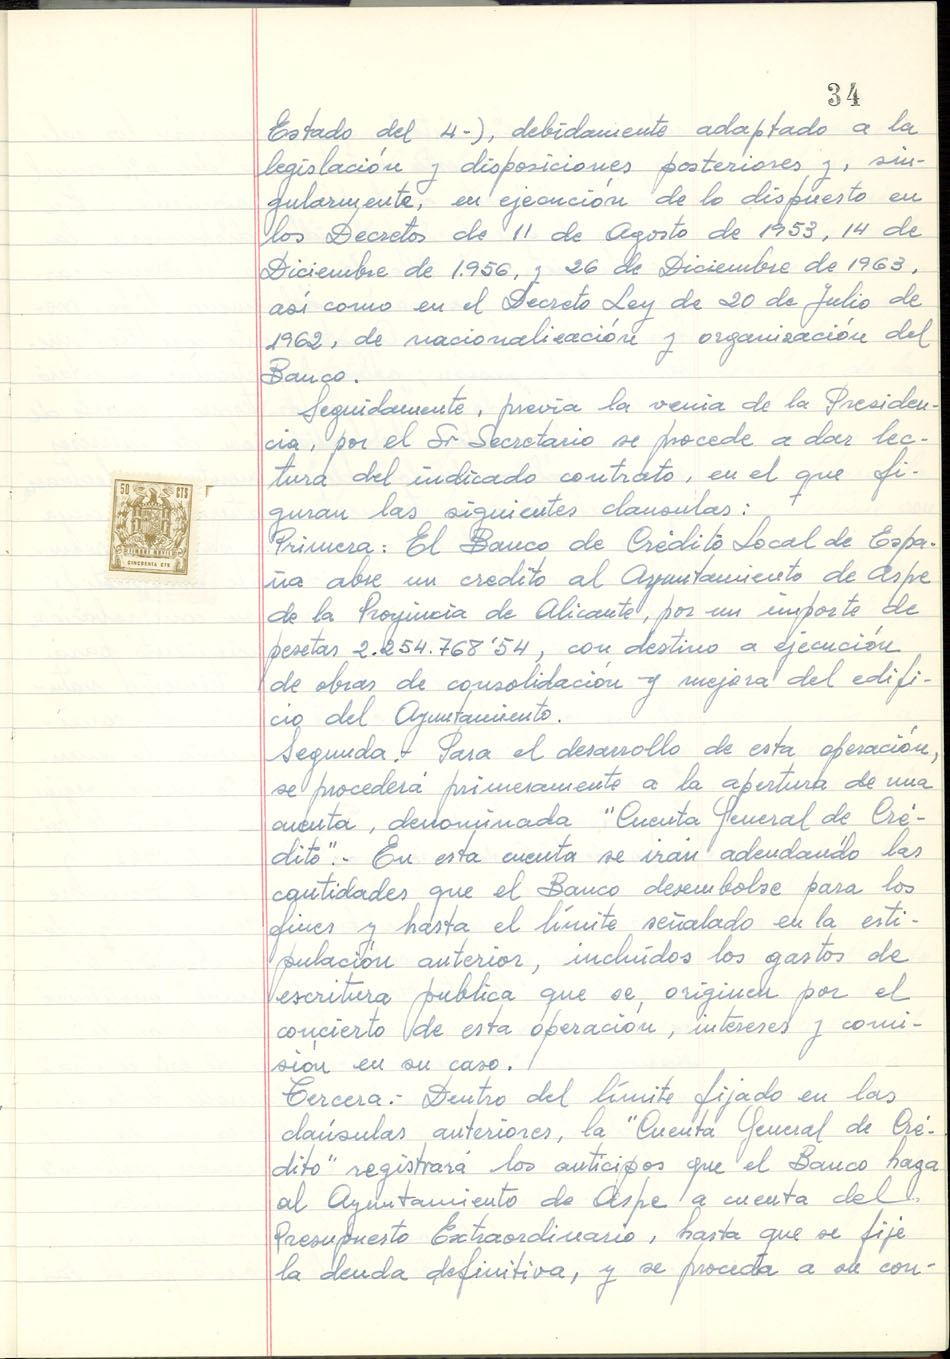 34
Estado del 4-), debidamente adaptado a la
legislación y disposiciones posteriores y, sin-
gularmente, en ejecución de lo dispuesto en
los Decretos de 11 de Agosto de 1953, 14 de
Diciembre de 1.956, y 26 de Diciembre de 1963,
así como en el Decreto Ley de 20 de Julio de
1962, de nacionalización y organización del
Banco.
Seguidamente, previa la venia de la Presiden-
cia, por el Sr Secretario se procede a dar lec-
tura del indicado contrato, en el que fi-
guran las siguientes clausulas:
Primera: El Banco de Crédito Local de Espa-
ña abre un credito al Ayuntamiento de Aspe
de la Provincia de Alicante, por un importe de
pesetas 2.254.768'54, con destino a ejecución
de obras de consolidación y mejora del edifi-
cio del Ayuntamiento.
Segunda.- Para el desarrollo de esta operación,
se procederá primeramente a la apertura de una
cuenta, denominada "Cuenta General de Cré-
dito".- En esta cuenta se irán adeudando las
cantidades que el Banco desembolse para los
fines y hasta el límite señalado en la esti-
pulación anterior, incluídos los gastos de
escritura publica que se originen por el
concierto de esta operación, intereses y comi-
sión en su caso.
Tercera.- Dentro del límite fijado en las
claúsulas anteriores, la "Cuenta General de Cré-
dito" registrará los anticipos que el Banco haga
al Ayuntamiento de Aspe a cuenta del
Presupuesto Extraordinario, hasta que se fije
la deuda definitiva, y se proceda a su con-
50 CTS
TIMBRE MOVIL
CINCUENTA CTS